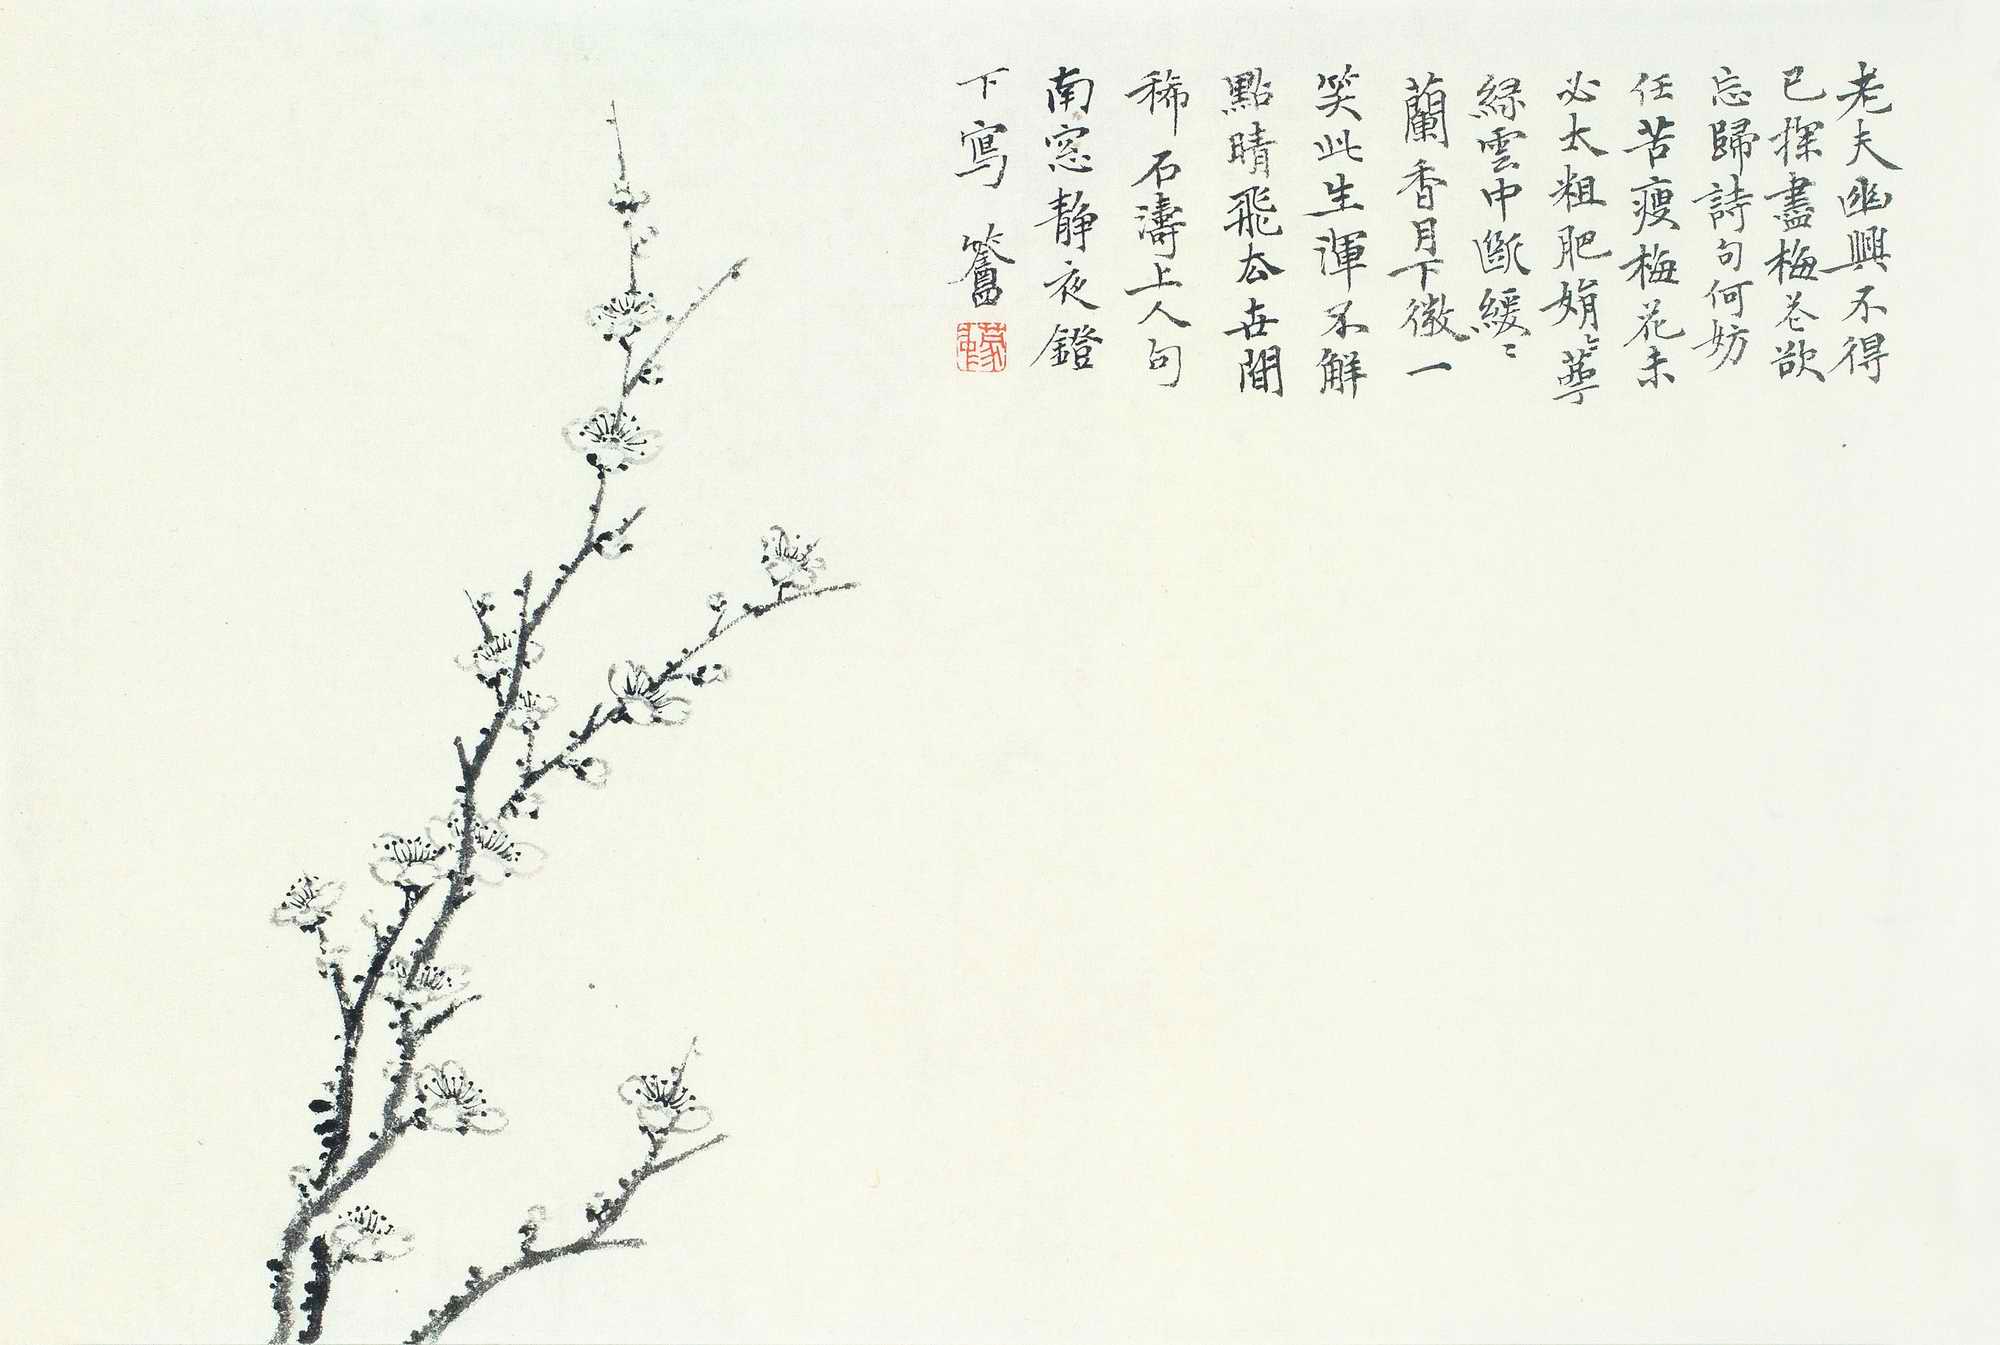 老夫幽興不得
已探盡梅花欲
忘歸詩句何妨
任苦瘦梅花未
必太粗肥娟〻萼
綠雲中斷緩〻
蘭香月下微一
笑此生渾不解
點睛飛去世間
稀石濤上人句
南窓静夜鐙
下寫